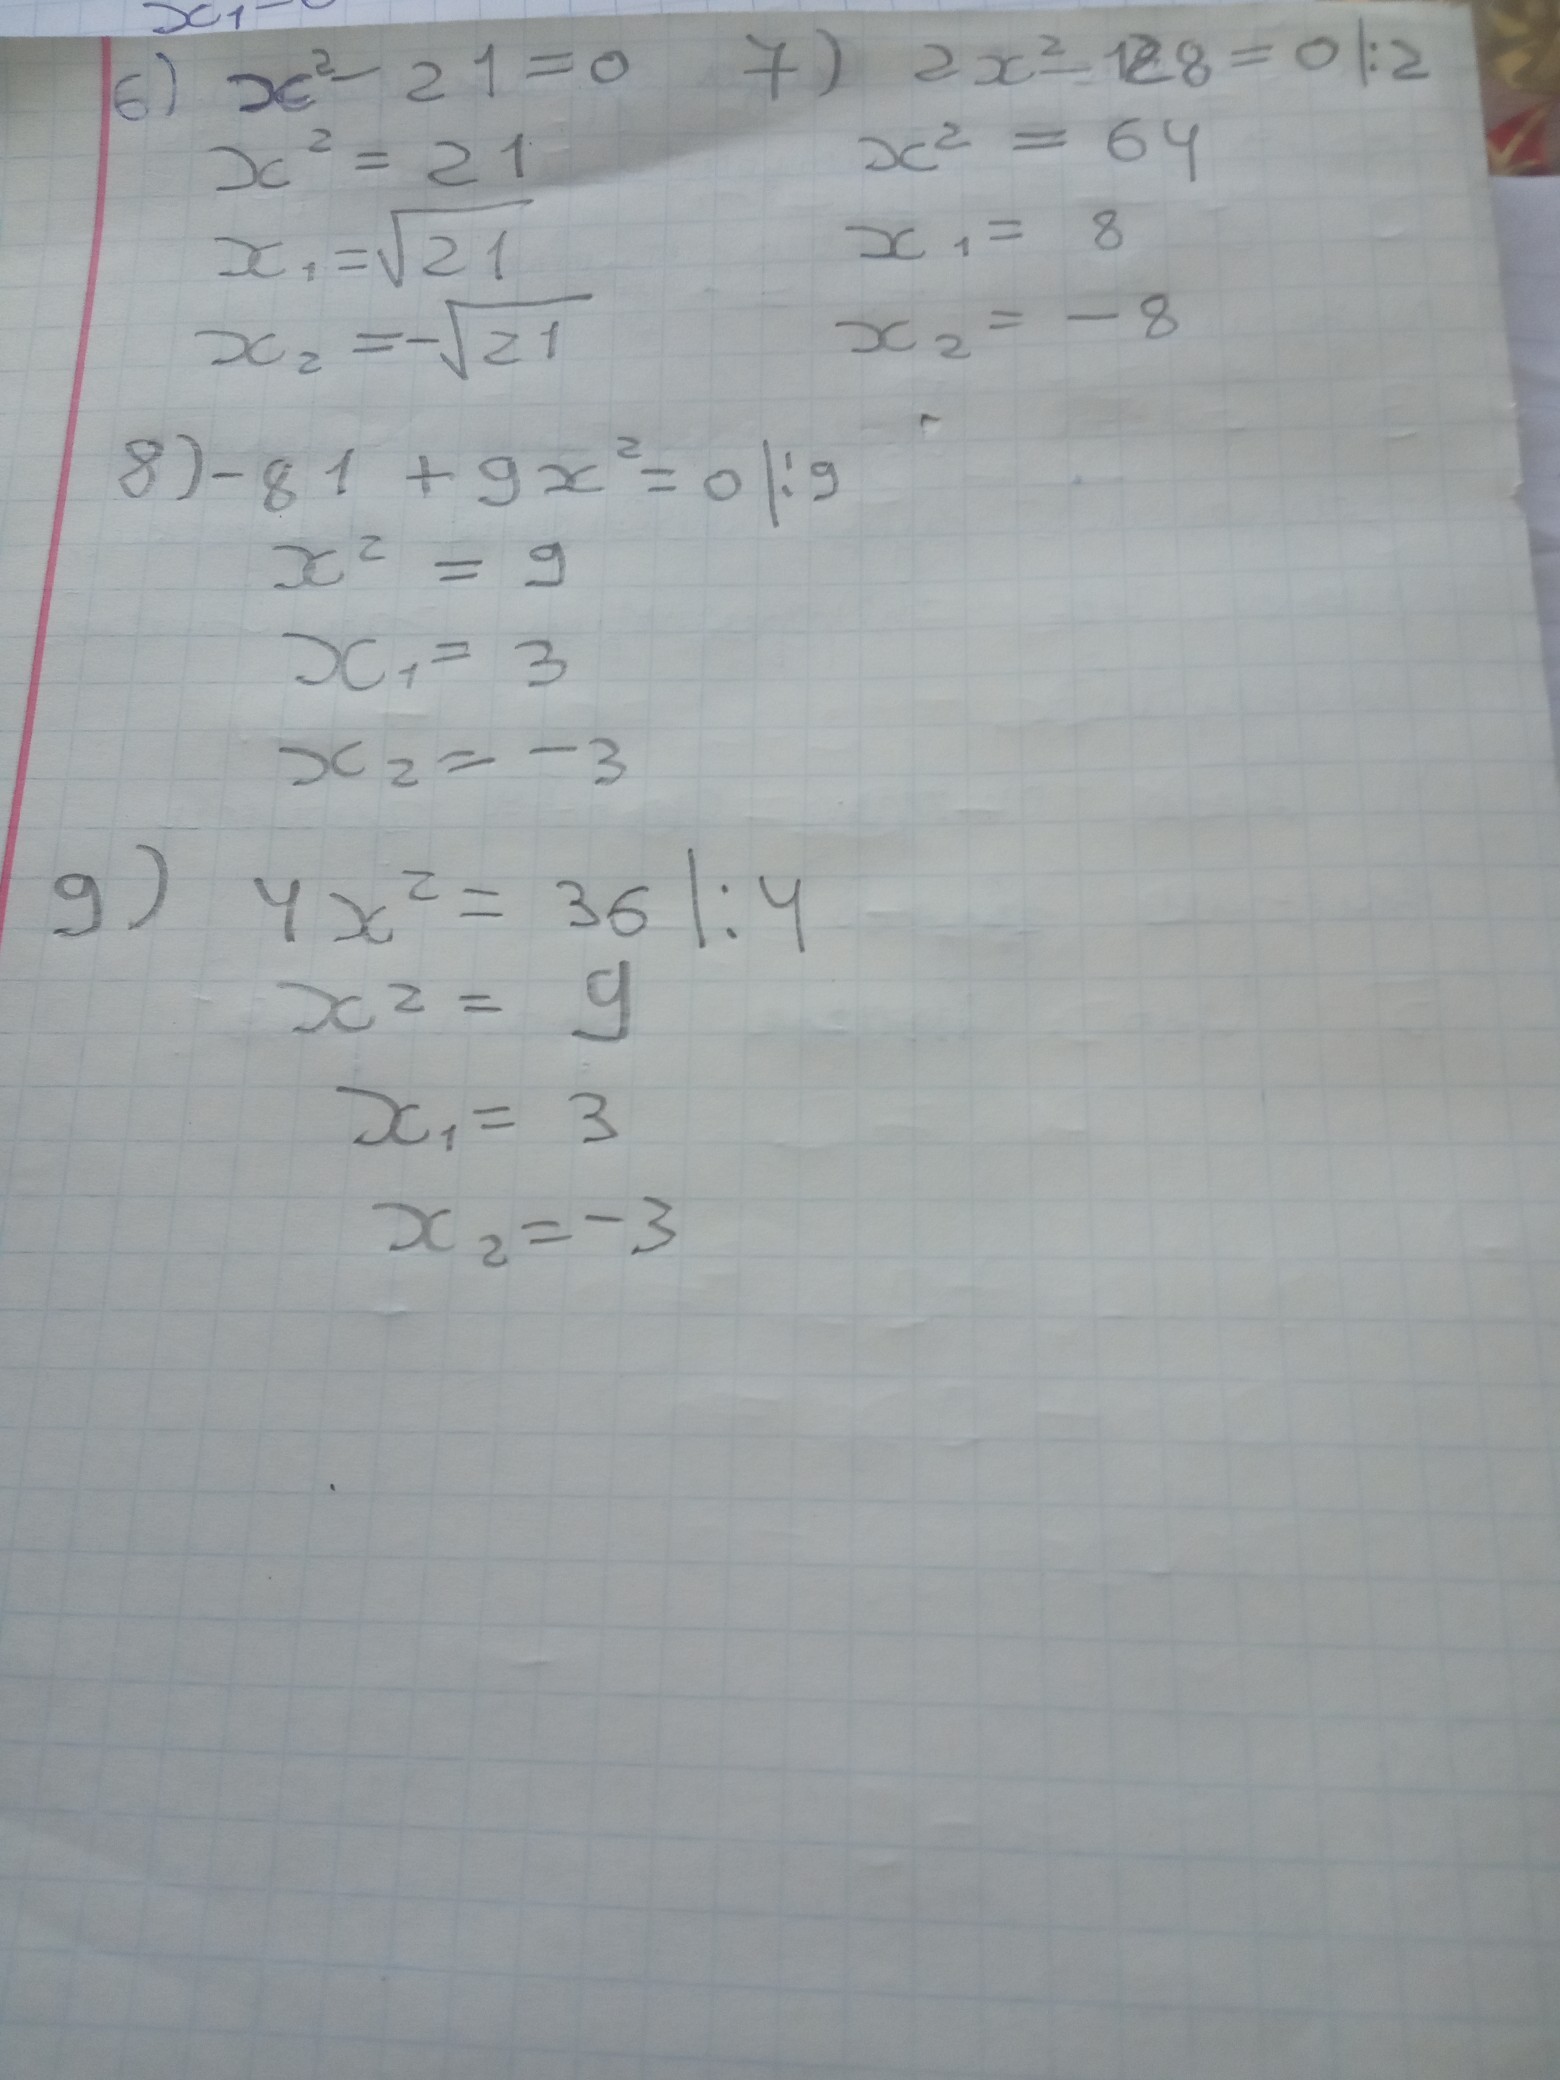 6) x² - 21 = 0
x² = 21
x₁ = √21
x₂ = -√21
7) 2x² - 128 = 0 |:2
x² = 64
x₁ = 8
x₂ = -8
8) -81 + 9x² = 0 |:9
x² = 9
x₁ = 3
x₂ = -3
9) 4x² = 36 |:4
x² = 9
x₁ = 3
x₂ = -3